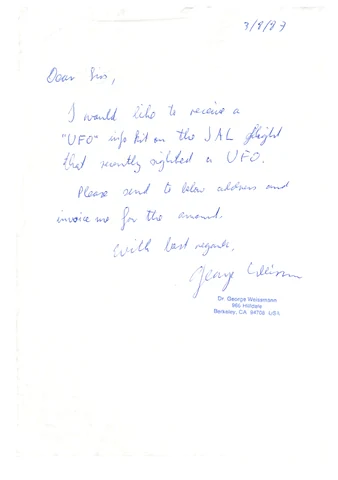 3/9/87
Dear Sirs,
I would like to receive a
"UFO" info kit on the JAL flight
that recently sighted a UFO.
Please send to below address and
invoice me for the amount.
With best regards,
George
Dr. George Weissmann
Hilldale
Berkeley, CA 94708 USA